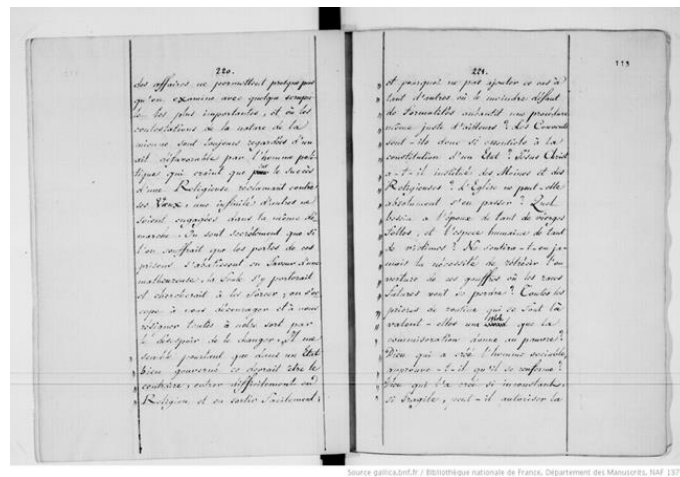 220.
des affaires ne permettent presque pas
qu'on examine avec quelque scrupu-
le les plus importantes, et où les
contestations de la nature de la
mienne sont toujours regardées d'un
œil défavorable par l'homme poli-
tique qui craint que sur le succès
d'une Religieuse réclamant contre
ses Vœux, une infinité d'autres ne
soient engagées dans la même dé-
marche. On sent secrètement que si
l'on souffrait que les portes de ces
prisons s'abatissent en faveur d'une
malheureuse, la foule s'y porterait
et chercherait à les forcer, on s'oc-
cupe à nous décourager et à nous
resigner toutes à notre sort par
le désespoir de le changer. Il me
semble pourtant que dans un État
bien gouverné ce devrait être le
contraire, entrer difficilement en
Religion et en sortir facilement;
221.
113
et pourquoi ne pas ajouter ce cas à
tant d'autres où le moindre défaut
de formalités anéantit une procédure
même juste d'ailleurs? Les Couvents
sont-ils donc si essentiels à la
constitution d'un État? Jésus Christ
a-t-il institué des Moines et des
Religieuses? L'Église ne peut-elle
absolument s'en passer? Quel
besoin a l'époux de tant de vierges
folles, et l'espèce humaine de tant
de victimes? Ne sentira-t-on ja-
mais la nécessité de rétrécir l'ou-
verture de ces gouffres où les races
futures vont se perdre? Toutes les
prières de routine qui se font là
valent-elles une obole que la
commiseration donne au pauvre?
Dieu qui a créé l'homme sociable,
approuve-t-il qu'il se renferme?
Dieu qui l'a créé si inconstant,
si fragile, peut-il autoriser la
Source gallica.bnf.fr / Bibliothèque nationale de France, Département des Manuscrits, NAF 137